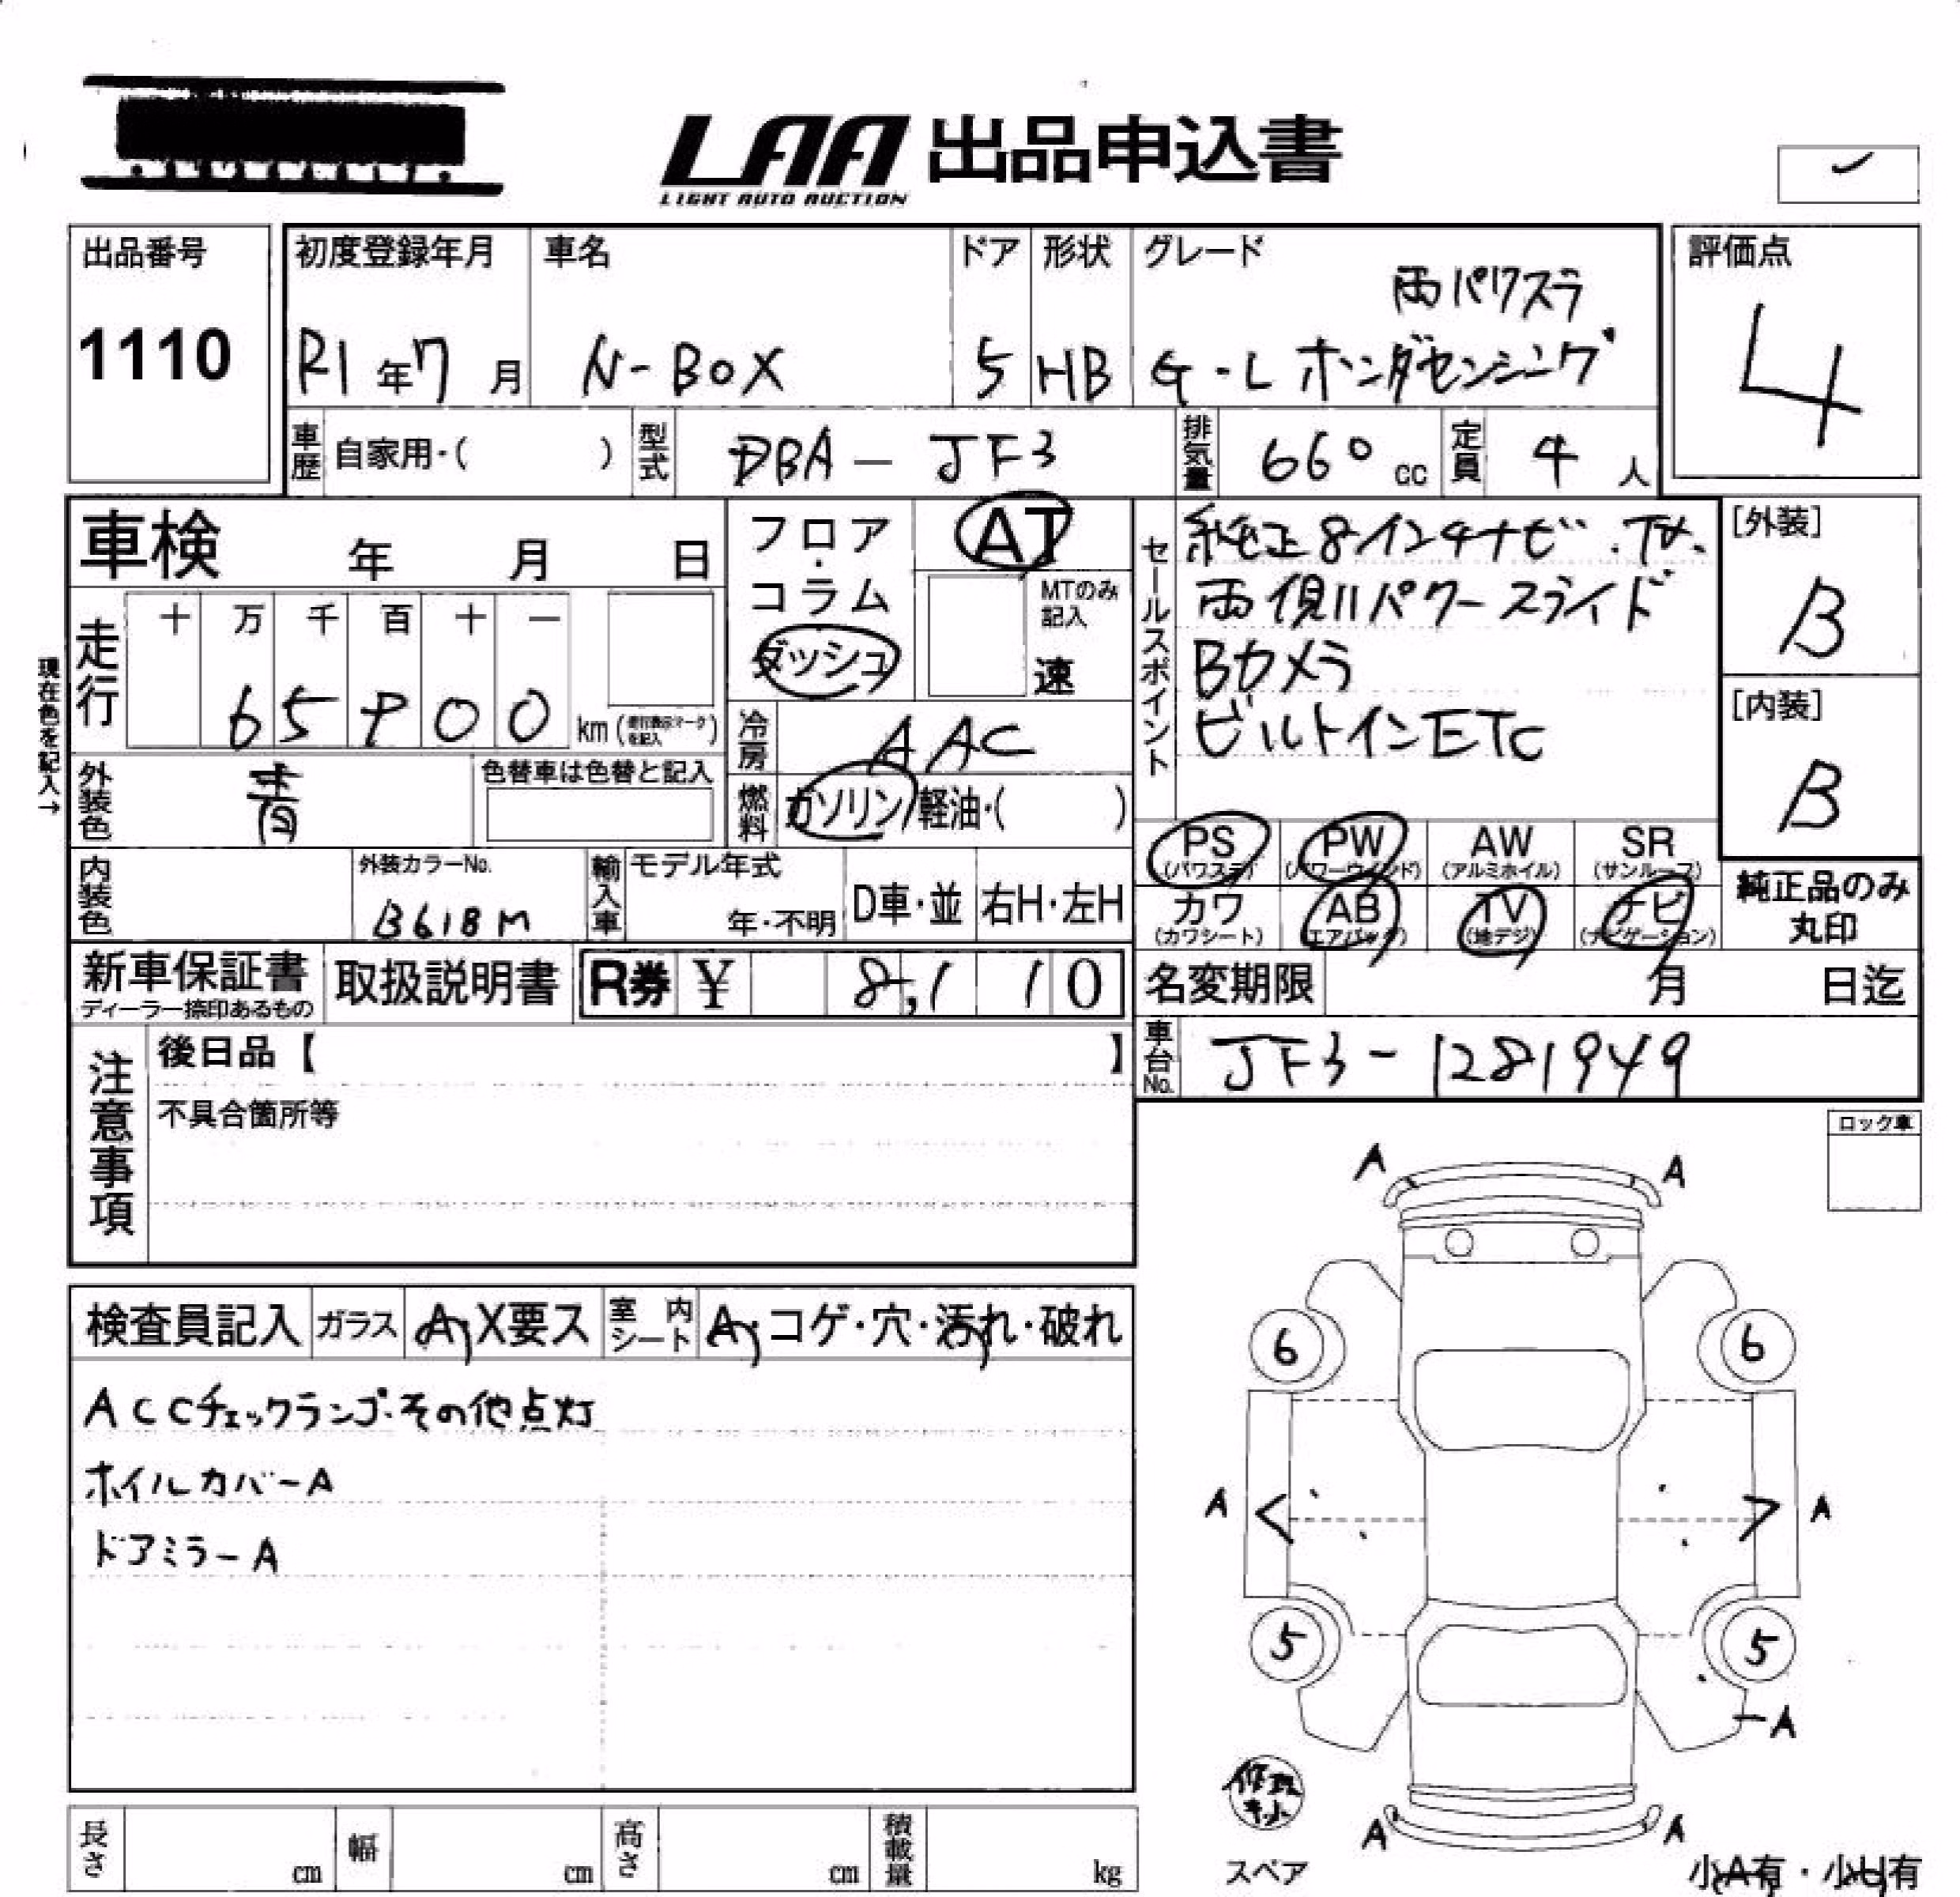 LAA 出品申込書
LIGHT AUTO AUCTION
出品番号
1110
初度登録年月
R1年7月
車名
N-BOX
ドア
5
形状
HB
グレード
両パワスラ
G・L ホンダセンシング
評価点
4
車歴 自家用・( )
型式 DBA-JF3
排気量 660 cc
定員 4 人
車検 年 月 日
フロア・コラム
ダッシュ
AT
MTのみ記入
速
セールスポイント
純正8インチナビ.TV.
両側パワースライド
Bカメラ
ビルトインETC
[外装]
B
[内装]
B
現在色を記入→
走行
十 万 千 百 十 一
65900 km
冷房 AAC
外装色 青
色替車は色替と記入
燃料 ガソリン/軽油・( )
内装色
外装カラーNo.
B618M
輸入車
モデル年式
年・不明
D車・並
右H・左H
PS (パワステ)
PW (パワーウインド)
AW (アルミホイル)
SR (サンルーフ)
カワ (カワシート)
AB (エアバッグ)
TV (地デジ)
ナビ (ナビゲーション)
純正品のみ
丸印
新車保証書
ディーラー捺印あるもの
取扱説明書
R券 ¥ 8,110
名変期限 月 日迄
車台No. JF3-1281949
注意事項
後日品【 】
不具合箇所等
ロック車
検査員記入
ガラス
A・X要ス
室内シート
A・コゲ・穴・汚れ・破れ
ACCチェックランプ・その他点灯
ホイルカバーA
ドアミラーA
A A
6 6
A A
5 5
A
修理キット
A A
スペア
小A有・小U有
長さ cm
幅 cm
高さ cm
積載量 kg